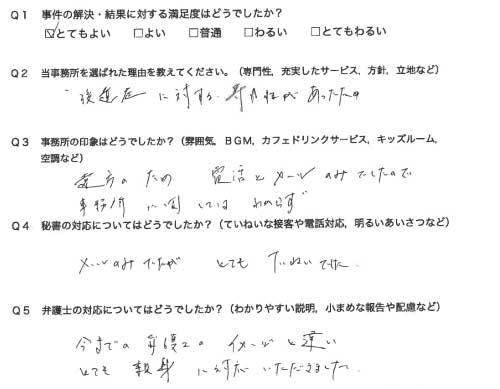 Q1 事件の解決・結果に対する満足度はどうでしたか？
☑とてもよい □よい □普通 □わるい □とてもわるい
Q2 当事務所を選ばれた理由を教えてください。（専門性，充実したサービス，方針，立地など）
後遺症に対する専門性があったため
Q3 事務所の印象はどうでしたか？（雰囲気，BGM，カフェドリンクサービス，キッズルーム，
空調など）
遠方のため 電話とメールのみでしたので
事務所に関してはわからず
Q4 秘書の対応についてはどうでしたか？（ていねいな接客や電話対応，明るいあいさつなど）
メールのみでしたが とてもていねいでした．
Q5 弁護士の対応についてはどうでしたか？（わかりやすい説明，小まめな報告や配慮など）
今までの弁護士のイメージと違い
とても親身に対応いただきました．